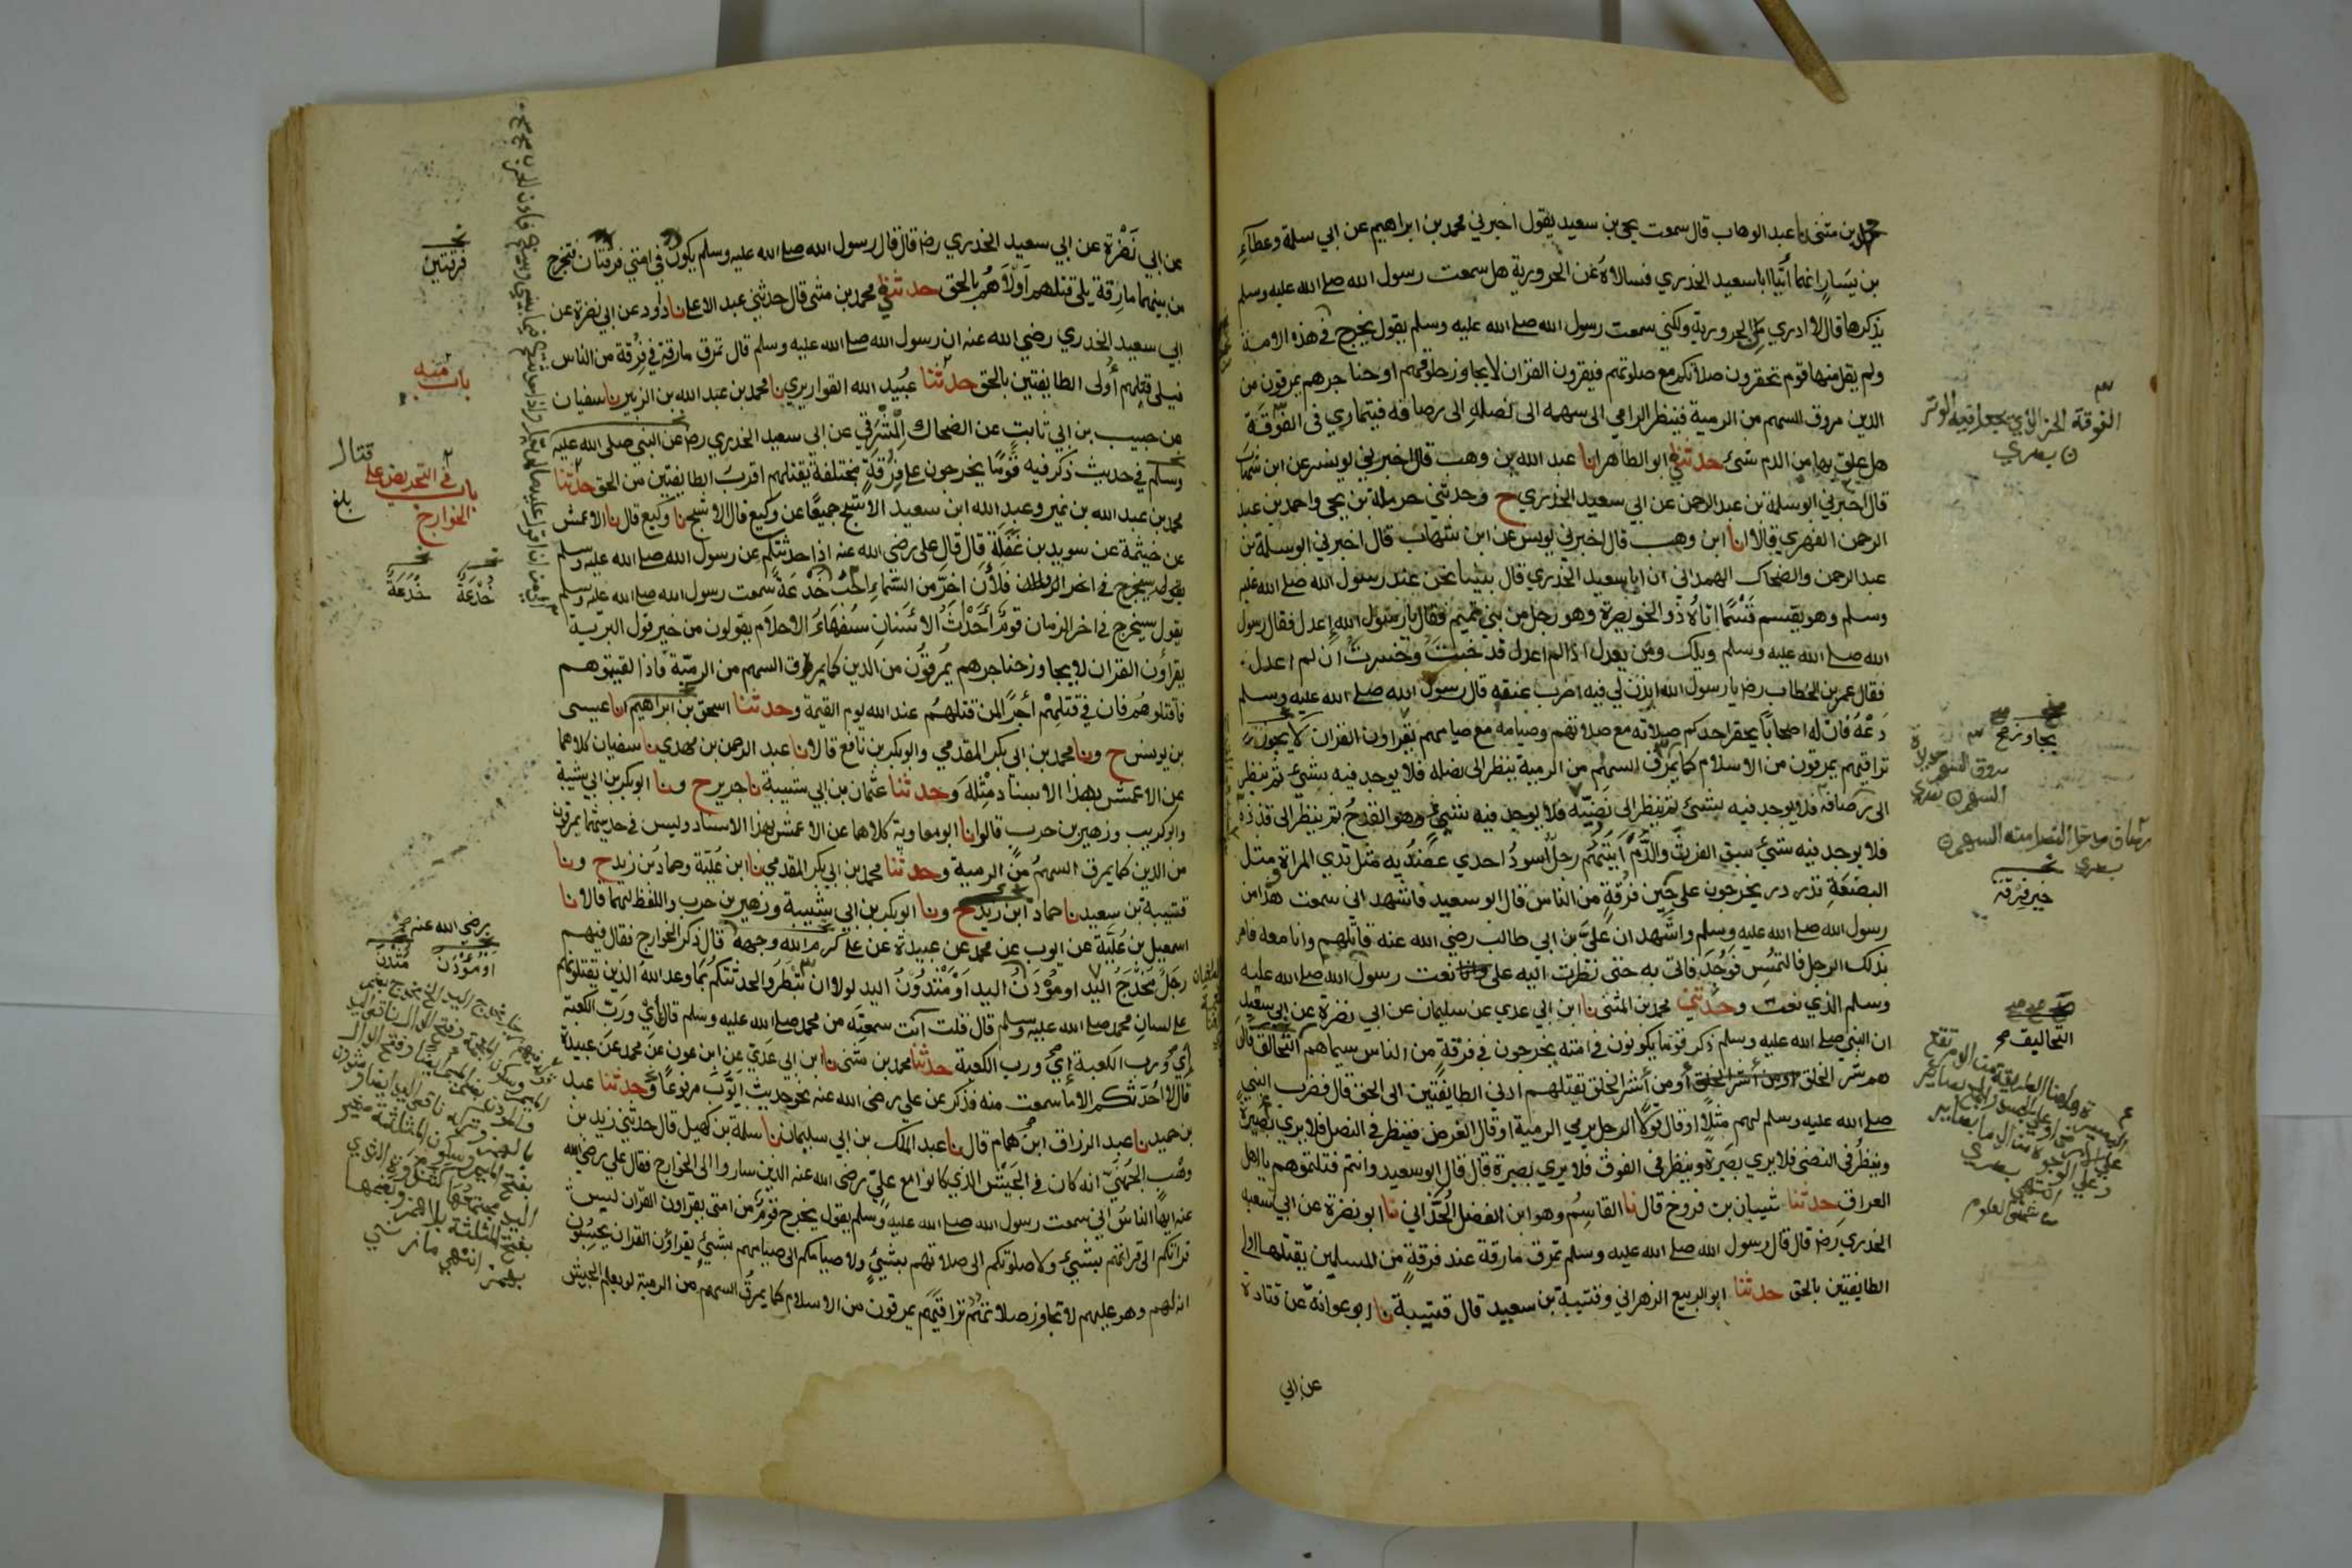 محمد بن مثنى نا عبد الوهاب قال سمعت يحيى بن سعيد يقول اخبرني محمد بن ابراهيم عن ابي سلمة وعطاءِ
بن يَسَارٍ انهما أتيا ابا سعيد الخدري فسالاهُ عن الحرورية هل سمعت رسول الله صلى الله عليه وسلم
يذكرها قال لا ادري من الحرورية ولكني سمعت رسول الله صلى الله عليه وسلم يقول يخرج في هذه الامة
ولم يقل منها قوم تحقرون صلاتكم مع صلوتهم فيقرون القران لا يجاوز حلوقهم او حناجرهم يمرقون من
الدين مروق السهم من الرمية فينظر الرامي الى سهمه الى نصلهِ الى رصافه فيتمارى في الفُوقَة
هل علق بها من الدم شيئ حدثني ابو الطاهر انا عبد الله بن وهب قال اخبرني يونس عن ابن شهاب
قال اخبرني ابو سلمة بن عبد الرحمن عن ابي سعيد الخدري ح وحدثني حرملة بن يحيى واحمد بن عبد
الرحمن الفهري قالا انا ابن وهب قال اخبرني يونس عن ابن شهاب قال اخبرني ابو سلمة بن
عبد الرحمن والضحاك الهمداني ان ابا سعيد الخدري قال بينما نحن عند رسول الله صلى الله عليه
وسلم وهو يقسم قَسْمًا اتاهُ ذو الخويصرة وهو رجل من بني تميم فقال يا رسول الله اعدل فقال رسول
الله صلى الله عليه وسلم ويلك ومن يعدل اذا لم اعدل قد خبتُ وخسرتُ ان لم اعدل
فقال عمر بن الخطاب رض يا رسول الله ايذن لي فيه اضرب عنقه قال رسول الله صلى الله عليه وسلم
دَعْهُ فانّ له اصحابًا يحقر احدكم صلاته مع صلاتهم وصيامه مع صيامهم يقراون القران لا يجوز
تراقيهم يمرقون من الاسلام كما يمرق السهم من الرمية ينظر الى نصله فلا يوجد فيه شيئ ثم ينظر
الى رصافه فلا يوجد فيه شيئ ثم ينظر الى نضيّه فلا يوجد فيه شيئ وهو القدحُ ثم ينظر الى قذذه
فلا يوجد فيه شيئ سبق الفرث والدَّمَ آيتهم رجل اسودُ احدى عضديه مثل ثدي المراة او مثل
البضعةِ تدردر يخرجون على حين فُرقةٍ من الناس قال ابو سعيد فاشهد اني سمعت هذا من
رسول الله صلى الله عليه وسلم واشهد ان عليّ بن ابي طالب رضي الله عنه قاتلهم وانا معه فامر
بذلك الرجل فالتمس فوُجدَ فاتى به حتى نظرت اليه على نعت رسول الله صلى الله عليه
وسلم الذي نعت وحدثني محمد بن المثنى نا ابن ابي عدي عن سليمان عن ابي نضرة عن ابي سعيد
ان النبي صلى الله عليه وسلم ذكر قوما يكونون في امته يخرجون في فرقةٍ من الناس سيماهم التحالق قال
هم شر الخلق او من أشر الخلق أو من أشر الخلق تقتلهم ادنى الطايفتين الى الحق قال فضرب النبي
صلى الله عليه وسلم لهم مثلاً او قال قولا الرجل يرمي الرمية او قال الغرض فينظر في النصل فلا يرى بصيرة
وينظرُ في النضي فلا يرى بصيرة وينظر في الفوق فلا يرى بصيرة قال قال ابو سعيد وانتم قتلتموهم يا اهل
العراق حدثنا شيبان بن فروخ قال نا القاسم وهو ابن الفضل الحُدّاني نا ابو نضرة عن ابي سعيد
الخدري رض قال قال رسول الله صلى الله عليه وسلم تمرق مارقة عند فرقةٍ من المسلمين يقتلها اولى
الطايفتين بالحق حدثنا ابو الربيع الزهراني وقتيبة بن سعيد قال قتيبة نا ابو عوانة عن قتادة
عن ابي
الفوقة الحز الذي يجعل فيه الوتر
يجاوز صح
خير فرقة
التحاليف صح
عن ابي نَضْرة عن ابي سعيد الخدري رض قال قال رسول الله صلى الله عليه وسلم يكون في امتي فرقتان فتخرج
من بينهما مارقة يلي قتلهم اولاهُم بالحق حدثني محمد بن مثنى قال حدثني عبد الاعلى نا داود عن ابي نضرة عن
ابي سعيد الخدري رضي الله عنه ان رسول الله صلى الله عليه وسلم قال تمرق مارقة في فرقة من الناس
فيلي قتلهم أولى الطايفتين بالحق حدثنا عبيد الله القواريري نا محمد بن عبد الله بن الزبير نا سفيان
عن حبيب بن ابي ثابت عن الضحاك المِشْرَقي عن ابي سعيد الخدري رض عن النبي صلى الله عليه
وسلم في حديث ذكر فيه قومًا يخرجون على فرقةٍ مختلفة يقتلهم اقرب الطايفتين من الحق حدثنا
محمد بن عبد الله بن نمير وعبد الله ابن سعيد الاشج جميعًا عن وكيع قال الاشج نا وكيع قال نا الاعمش
عن خيثمة عن سويد بن غَفَلة قال قال علي رضي الله عنه اذا حدثتكم عن رسول الله صلى الله عليه وسلم
فلأن اخرّ من السماءِ احب خَدْعَةً سمعت رسول الله صلى الله عليه وسلم
يقول سيخرج في اخر الزمان قومٌ أَحْدَاثُ الاسنانِ سُفَهَاءُ الاحلام يقولون من خير قول البرية
يقراون القران لا يجاوز حناجرهم يمرقون من الدين كما يمرق السهم من الرميّة فاذا لقيتموهم
فاقتلوهم فان في قتلهم أجرًا لمن قتلهُم عند الله يوم القيمة وحدثنا اسحق بن ابراهيم انا عيسى
بن يونس ح ونا محمد بن ابي بكر المقدمي وابو بكر بن نافع قالا نا عبد الرحمن بن مهدي نا سفيان كلاهما
عن الاعمش بهذا الاسناد مثله وحدثنا عثمان بن ابي شيبة نا جرير ح ونا ابو بكر بن ابي شيبة
وابو كريب وزهير بن حرب قالوا نا ابو معاوية كلاهما عن الاعمش بهذا الاسناد وليس في حديثهما يمرقون
من الدين كما يمرق السهمُ من الرمية وحدثنا محمد بن ابي بكر المقدمي نا ابن عُليّة وحماد بن زيد ح ونا
قتيبة بن سعيد نا حماد ابن زيد ح ونا ابو بكر بن ابي شيبة وزهير بن حرب واللفظ لهما قالا نا
اسمعيل بن عُليّة عن ايوب عن محمد عن عبيدة عن علي كرم الله وجهه قال ذكر الخوارج فقال فيهم
رجل مُخْدَجُ اليد او مُوْدَنُ اليد او مَثْدُوْنُ اليد لولا ان تبطروا لحدثتكم بما وعد اللهُ الذين يقتلونهم
على لسان محمد صلى الله عليه وسلم قال قلت آنت سمعته من محمد صلى الله عليه وسلم قال إي وربّ الكعبة
إي ورب الكعبة إي ورب الكعبة حدثنا محمد بن مثنى نا ابن ابي عدي عن ابن عون عن محمد عن عبيدة
قال لا احدثكم الا ما سمعت منه فذكر عن علي رضي الله عنه نحو حديث ايوب مرفوعًا وحدثنا عبد
بن حميد نا عبد الرزاق ابن همام قال نا عبد الملك بن ابي سليمان نا سلمة بن كهيل قال حدثني زيد بن
وهب الجهنيّ انه كان في الجيش الذي كانوا مع عليّ رضي الله عنه الذين ساروا الى الخوارج فقال علي رضي الله
عنه ايها الناسُ اني سمعت رسول الله صلى الله عليه وسلم يقول يخرج قومٌ من امتي يقراون القران ليس
قراتكم الى قراتهم بشيئ ولا صلوتكم الى صلاتهم بشيئ ولا صيامكم الى صيامهم بشيئ يقراون القران يحسبون
انه لهم وهو عليهم لا تجاوز صلاتهم تراقيهم يمرقون من الاسلام كما يمرق السهم من الرمية لو يعلم الجيش
فرقتين
باب منه
باب في التحريض على قتال
الخوارج
بلغ
خُدْعَة خَدَعَة
رضي الله عنه
او مُؤْدَن